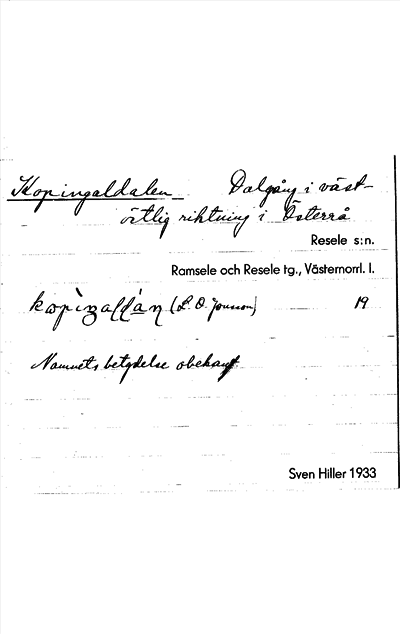 Kopingaldalen Dalgång i väst-
östlig riktning i Österrå
Resele s:n.
Ramsele och Resele tg., Västernorrl. l.
(L. O. Jonsson) 19
Namnets betydelse obekant
Sven Hiller 1933